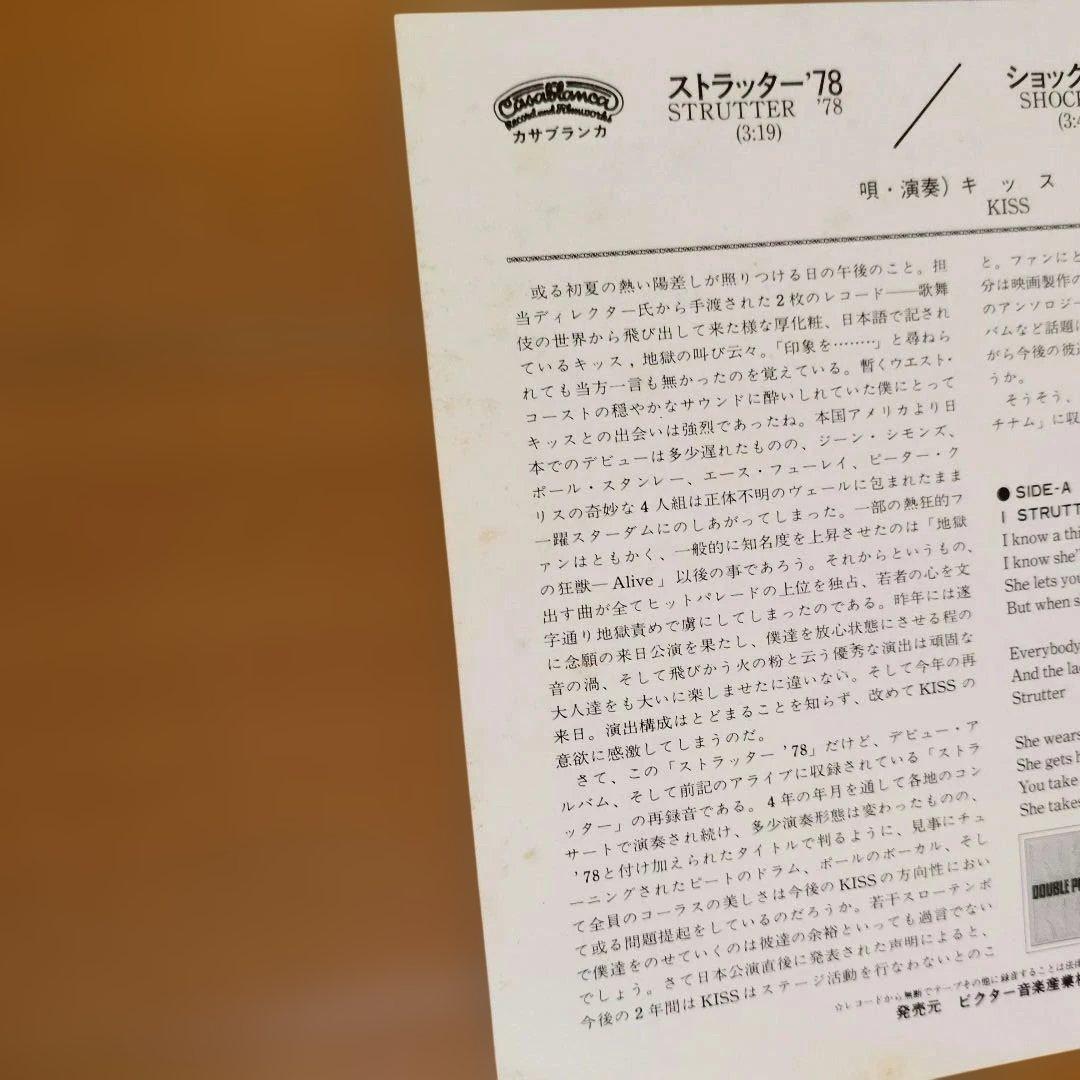 Casablanca
Record and Filmworks
カサブランカ
ストラッター'78
STRUTTER '78
(3:19)
ショック
SHOCK
(3:4
唄・演奏)キッス
KISS
或る初夏の熱い陽差しが照りつける日の午後のこと。担
当ディレクター氏から手渡された2枚のレコード──歌舞
伎の世界から飛び出して来た様な厚化粧、日本語で記され
ているキッス,地獄の叫び云々。「印象を………」と尋ねら
れても当方一言も無かったのを覚えている。暫くウエスト・
コーストの穏やかなサウンドに酔いしれていた僕にとって
キッスとの出会いは強烈であったね。本国アメリカより日
本でのデビューは多少遅れたものの、ジーン・シモンズ、
ポール・スタンレー、エース・フューレイ、ピーター・ク
リスの奇妙な4人組は正体不明のヴェールに包まれたまま
一躍スターダムにのしあがってしまった。一部の熱狂的フ
ァンはともかく、一般的に知名度を上昇させたのは「地獄
の狂獣─ Alive」以後の事であろう。それからというもの、
出す曲が全てヒットパレードの上位を独占、若者の心を文
字通り地獄責めで虜にしてしまったのである。昨年には遂
に念願の来日公演を果たし、僕達を放心状態にさせる程の
音の渦、そして飛びかう火の粉と云う優秀な演出は頑固な
大人達をも大いに楽しませたに違いない。そして今年の再
来日。演出構成はとどまることを知らず、改めてKISSの
意欲に感激してしまうのだ。
さて、この「ストラッター '78」だけど、デビュー・ア
ルバム、そして前記のアライブに収録されている「ストラ
ッター」の再録音である。4年の年月を通して各地のコン
サートで演奏され続け、多少演奏形態は変わったものの、
'78と付け加えられたタイトルで判るように、見事にチュ
ーニングされたビートのドラム、ポールのボーカル、そし
て全員のコーラスの美しさは今後のKISSの方向性におい
て或る問題提起をしているのだろうか。若干スローテンポ
で僕達をのせていくのは彼達の余裕といっても過言でない
でしょう。さて日本公演直後に発表された声明によると、
今後の2年間はKISSはステージ活動を行なわないとのこ
と。ファンにと
分は映画製作の
のアンソロジー
バムなど話題に
がら今後の彼達
うか。
そうそう、
チナム」に収
●SIDE-A
I STRUTT
I know a thi
I know she'
She lets you
But when s
Everybody
And the la
Strutter
She wears
She gets h
You take
She takes
DOUBLE P
☆レコードから無断でテープその他に録音することは法律
発売元 ビクター音楽産業株